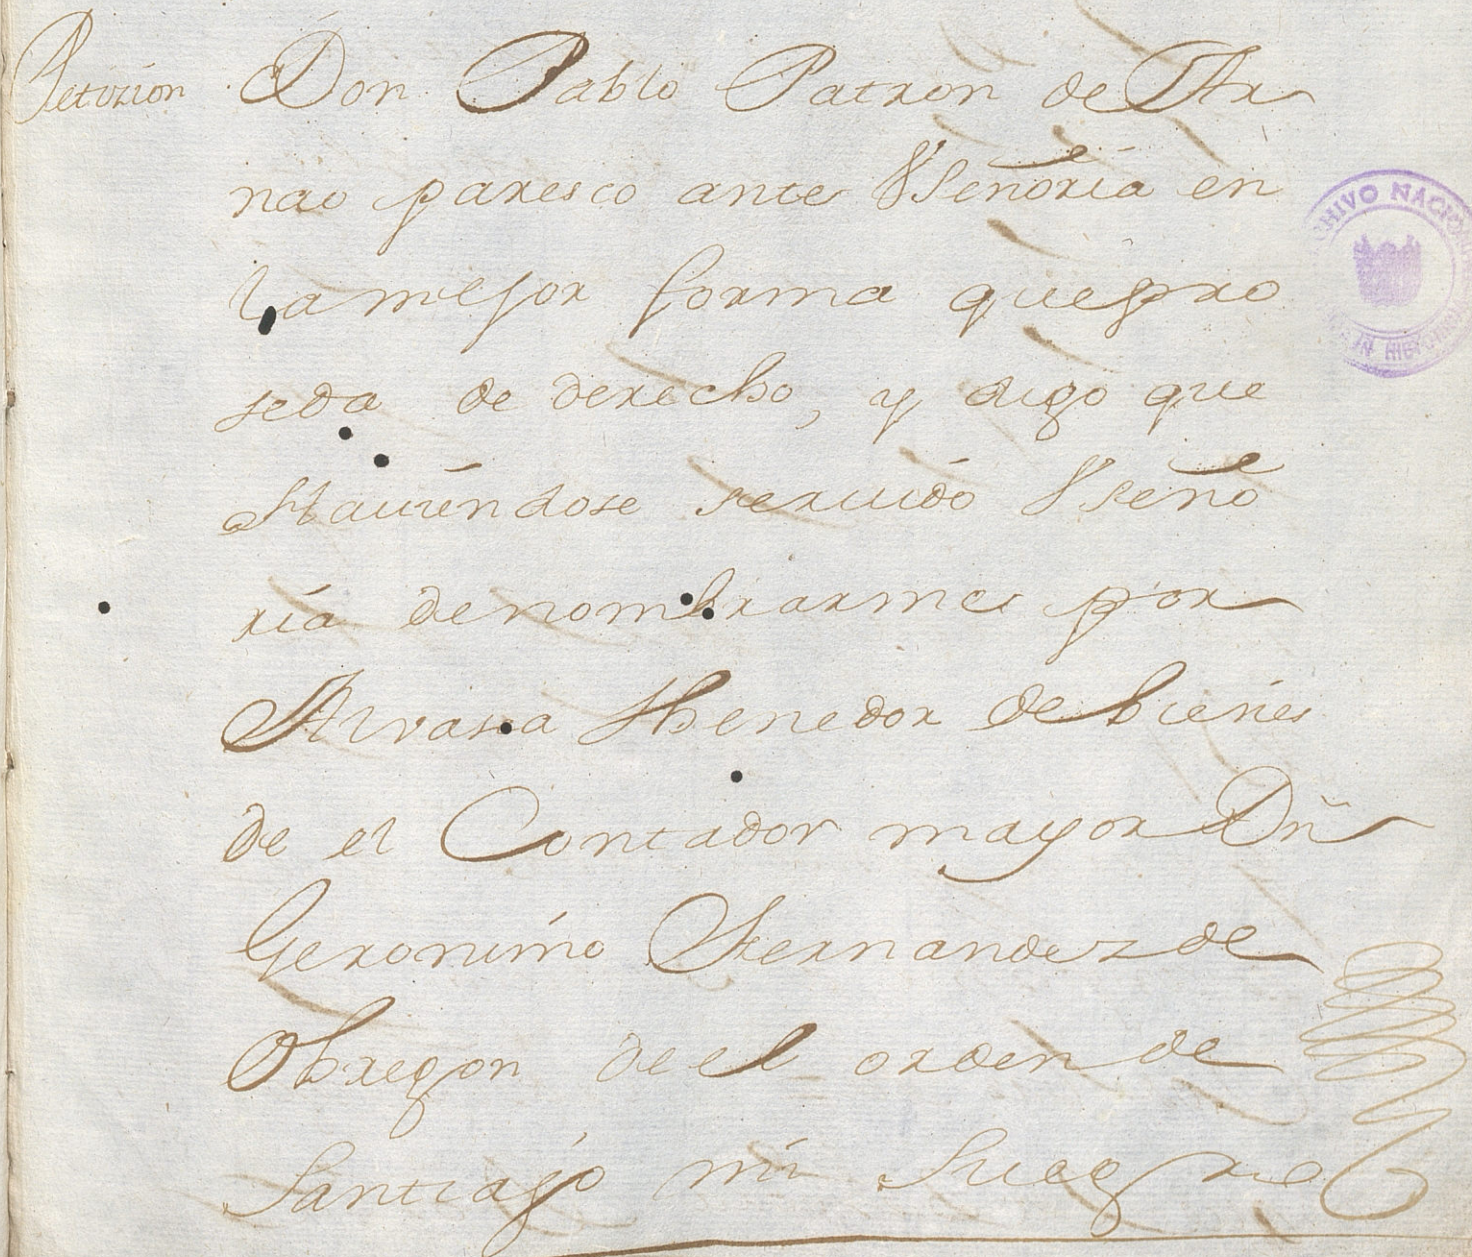 Petizion
Don Pablo Patron de Ar
nao paresco ante VSeñoria en
la mejor forma que pro
seda de derecho, y digo que
Hauiendose seruido Vseño
ria de nombrarme por
Alvasea thenedor de bienes
de el Contador mayor Dñ
Geronimo Fernandez de
Obregon de el orden de
Santiago mi Suegro
CHIVO NACIONAL